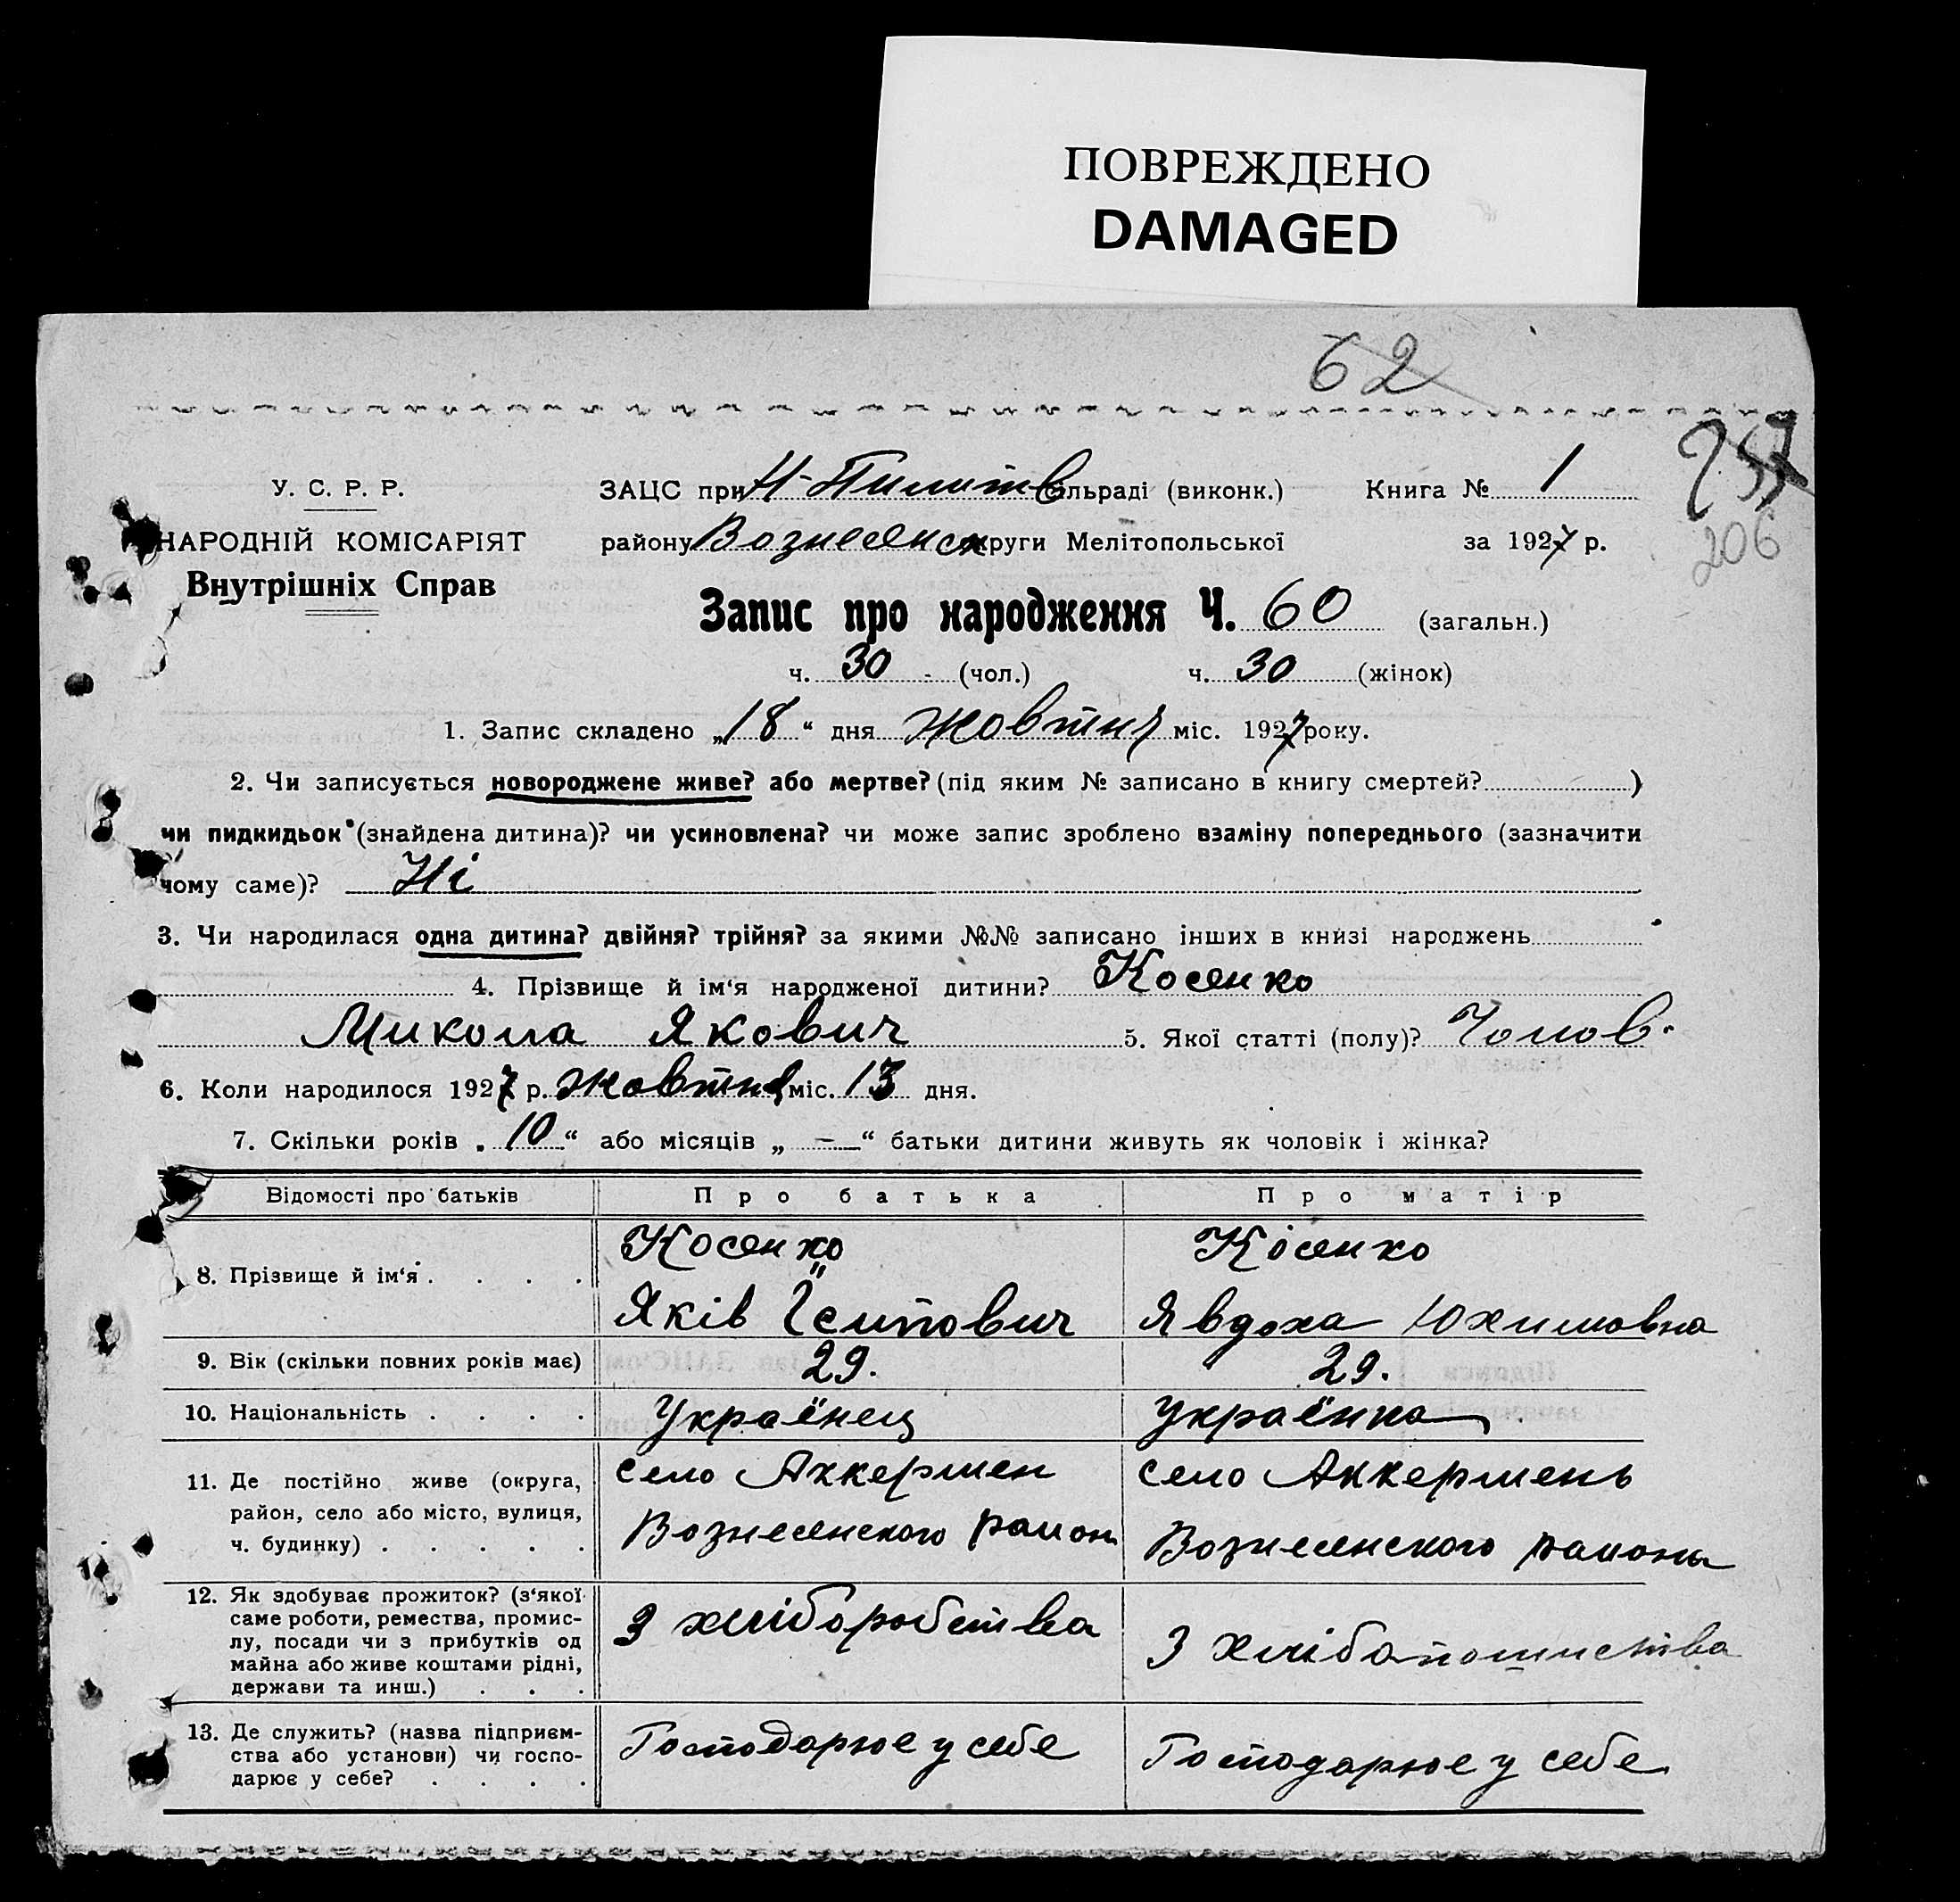 ПОВРЕЖДЕНО
DAMAGED
62
У. С. Р. Р.
НАРОДНІЙ КОМІСАРІЯТ
Внутрішніх Справ
ЗАЦС при Н-Пилипів сільраді (виконк.) Книга № 1
району Вознесенск округи Мелітопольської за 1927 р.
206
Запис про народження Ч. 60 (загальн.)
ч. 30 (чол.) ч. 30 (жінок)
1. Запис складено „18“ дня жовтня міс. 1927 року.
2. Чи записується новороджене живе? або мертве? (під яким № записано в книгу смертей? )
чи пидкидьок (знайдена дитина)? чи усиновлена? чи може запис зроблено взаміну попереднього (зазначити
чому саме)? Ні
3. Чи народилася одна дитина? двійня? трійня? за якими №№ записано інших в книзі народжень
4. Прізвище й ім‘я народженої дитини? Косенко
Микола Якович 5. Якої статті (полу)? Чолов.
6. Коли народилося 1927 р. жовтня міс. 13 дня.
7. Скільки років „10“ або місяців „ — “ батьки дитини живуть як чоловік і жінка?
Відомості про батьків Про батька Про матір
8. Прізвище й ім‘я . . . . Косенко Косенко
Яків Йсипович Явдоха Юхимовна
9. Вік (скільки повних років має) 29. 29.
10. Національність . . . . Українец Українка
11. Де постійно живе (округа, район, село або місто, вулиця, ч. будинку) . . . . .
село Аккермен
Вознесенского район
село Аккермень
Вознесенского района
12. Як здобуває прожиток? (з‘якої
саме роботи, ремества, промис-
лу, посади чи з прибутків од
майна або живе коштами рідні,
держави та инш.) . . .
З хліборобства
З хлібапошиства
13. Де служить? (назва підприєм-
ства або установи) чи госпо-
дарює у себе? . . . .
Господарює у себе
Господарює у себе